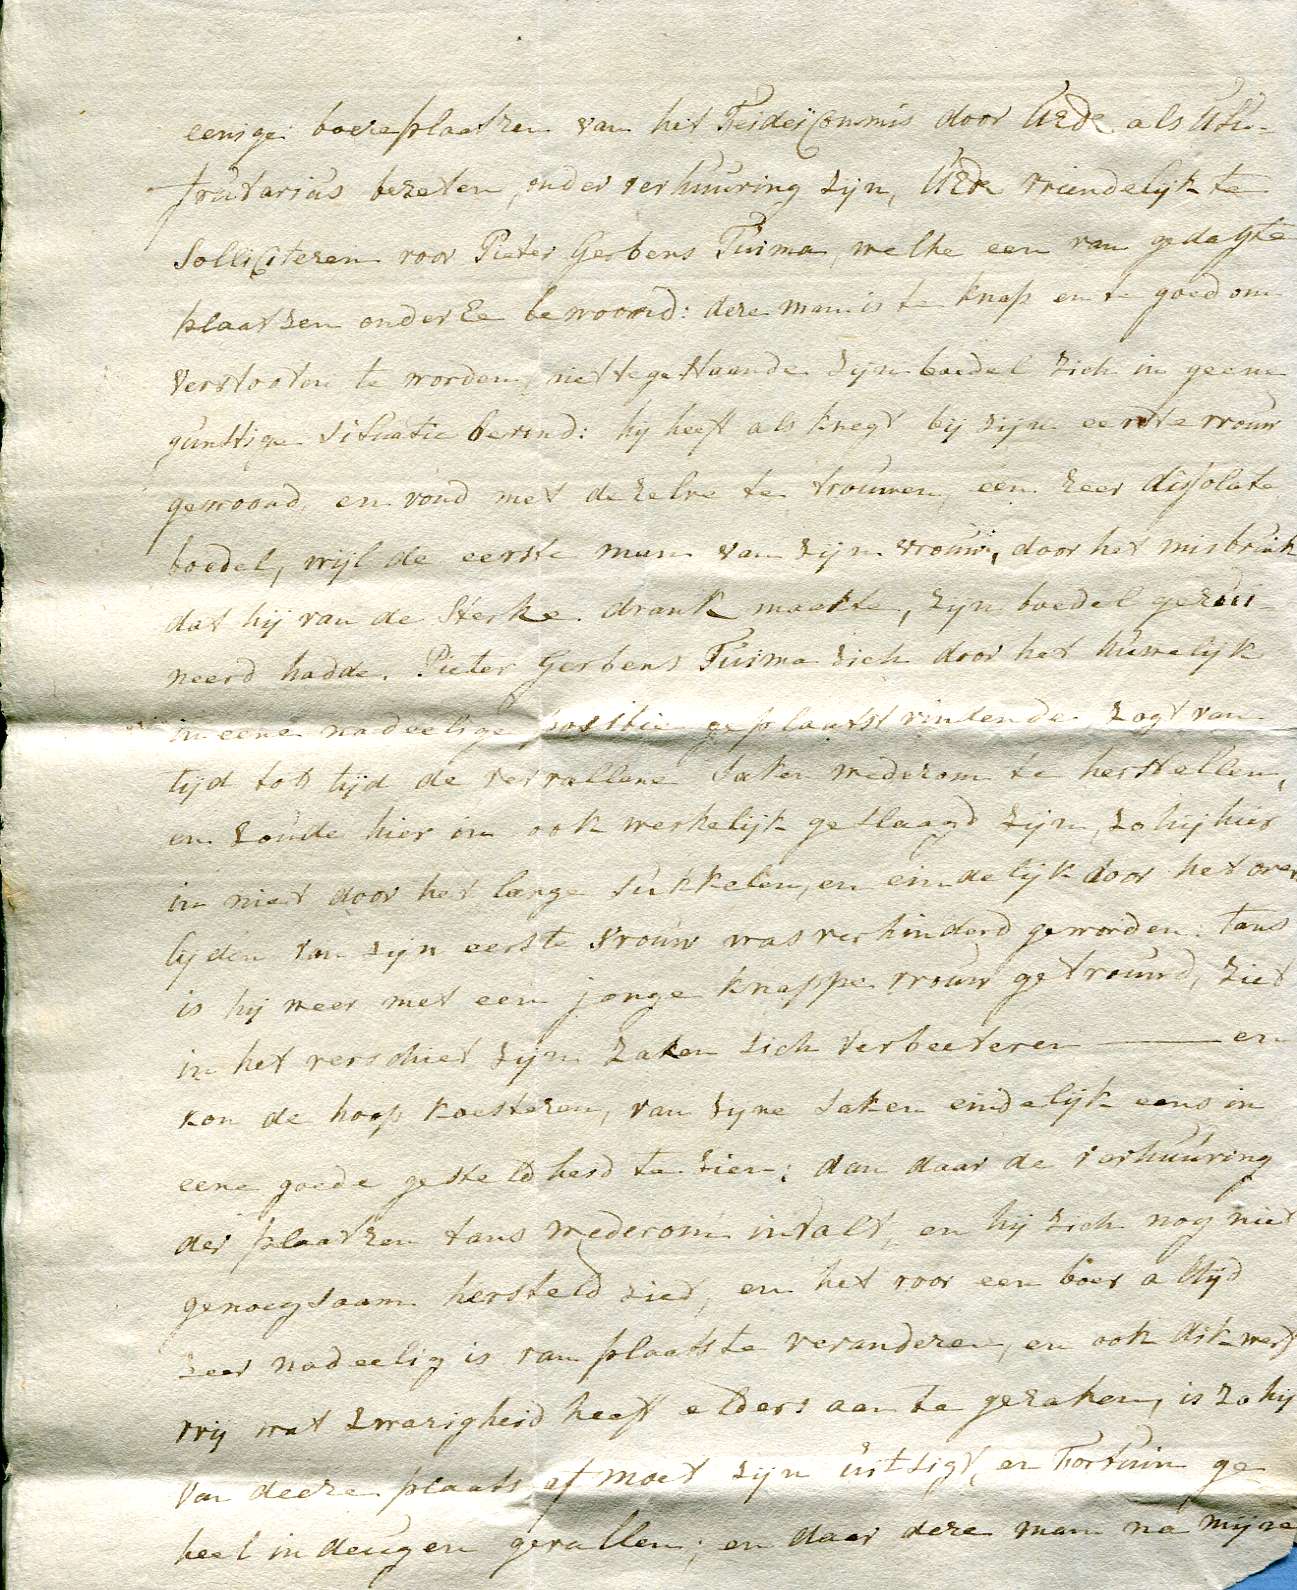 eenige boereplaatzen van het Feideicommis door UEde als Usu-
frutarius bezeten, onder verhuuring zijn, UEde vriendelijk te
Solliciteren voor Pieter Gerbens Tuima, welke een van gedagte
plaatzen onder Ee bewoond: deze man is te knap en te goed om
verstooten te worden, niettegestaande zijn boedel zich in geene
gunstige situatie bevind: hij heeft als knegt bij zijn eerste vrouw
gewoond, en vond met dezelve te trouwen een zeer dissolate
boedel, wijl de eerste man van zijn vrouw, door het misbruik
dat hij van de Sterke drank maakte, zijn boedel gerui-
neerd hadde. Pieter Gerbens Tuima zich door het huwelijk
in eene nadeelige positie geplaatst vintende, zogt van
tijd tot tijd de vervallene saken wederom te herstellen,
en zoude hier in ook werkelijk geslaagd zijn, zo hij hier
in niet door het lange sukkelen, en eindelijk door het over
lijden van zijn eerste vrouw was verhinderd geworden. Tans
is hij weer met een jonge knappe vrouw getrouwd, ziet
in het verschiet zijn zaken zich verbeeteren ——— en
kon de hoop koesteren, van zyne saken eindelijk eens in
eene goede gesteldheid te zien; dan daar de verhuuring
der plaatzen tans wederom invalt, en hij zich nog niet
genoegsaam hersteld ziet, en het voor een boer altijd
zeer nadeelig is van plaats te veranderen, en ook dikwerf
vrij wat zwarigheid heeft elders aan te geraken, is zo hij
van deeze plaats af moet zijn uitsigt, en Fortuin ge
heel in deugen gevallen; en daar deze man na mijne